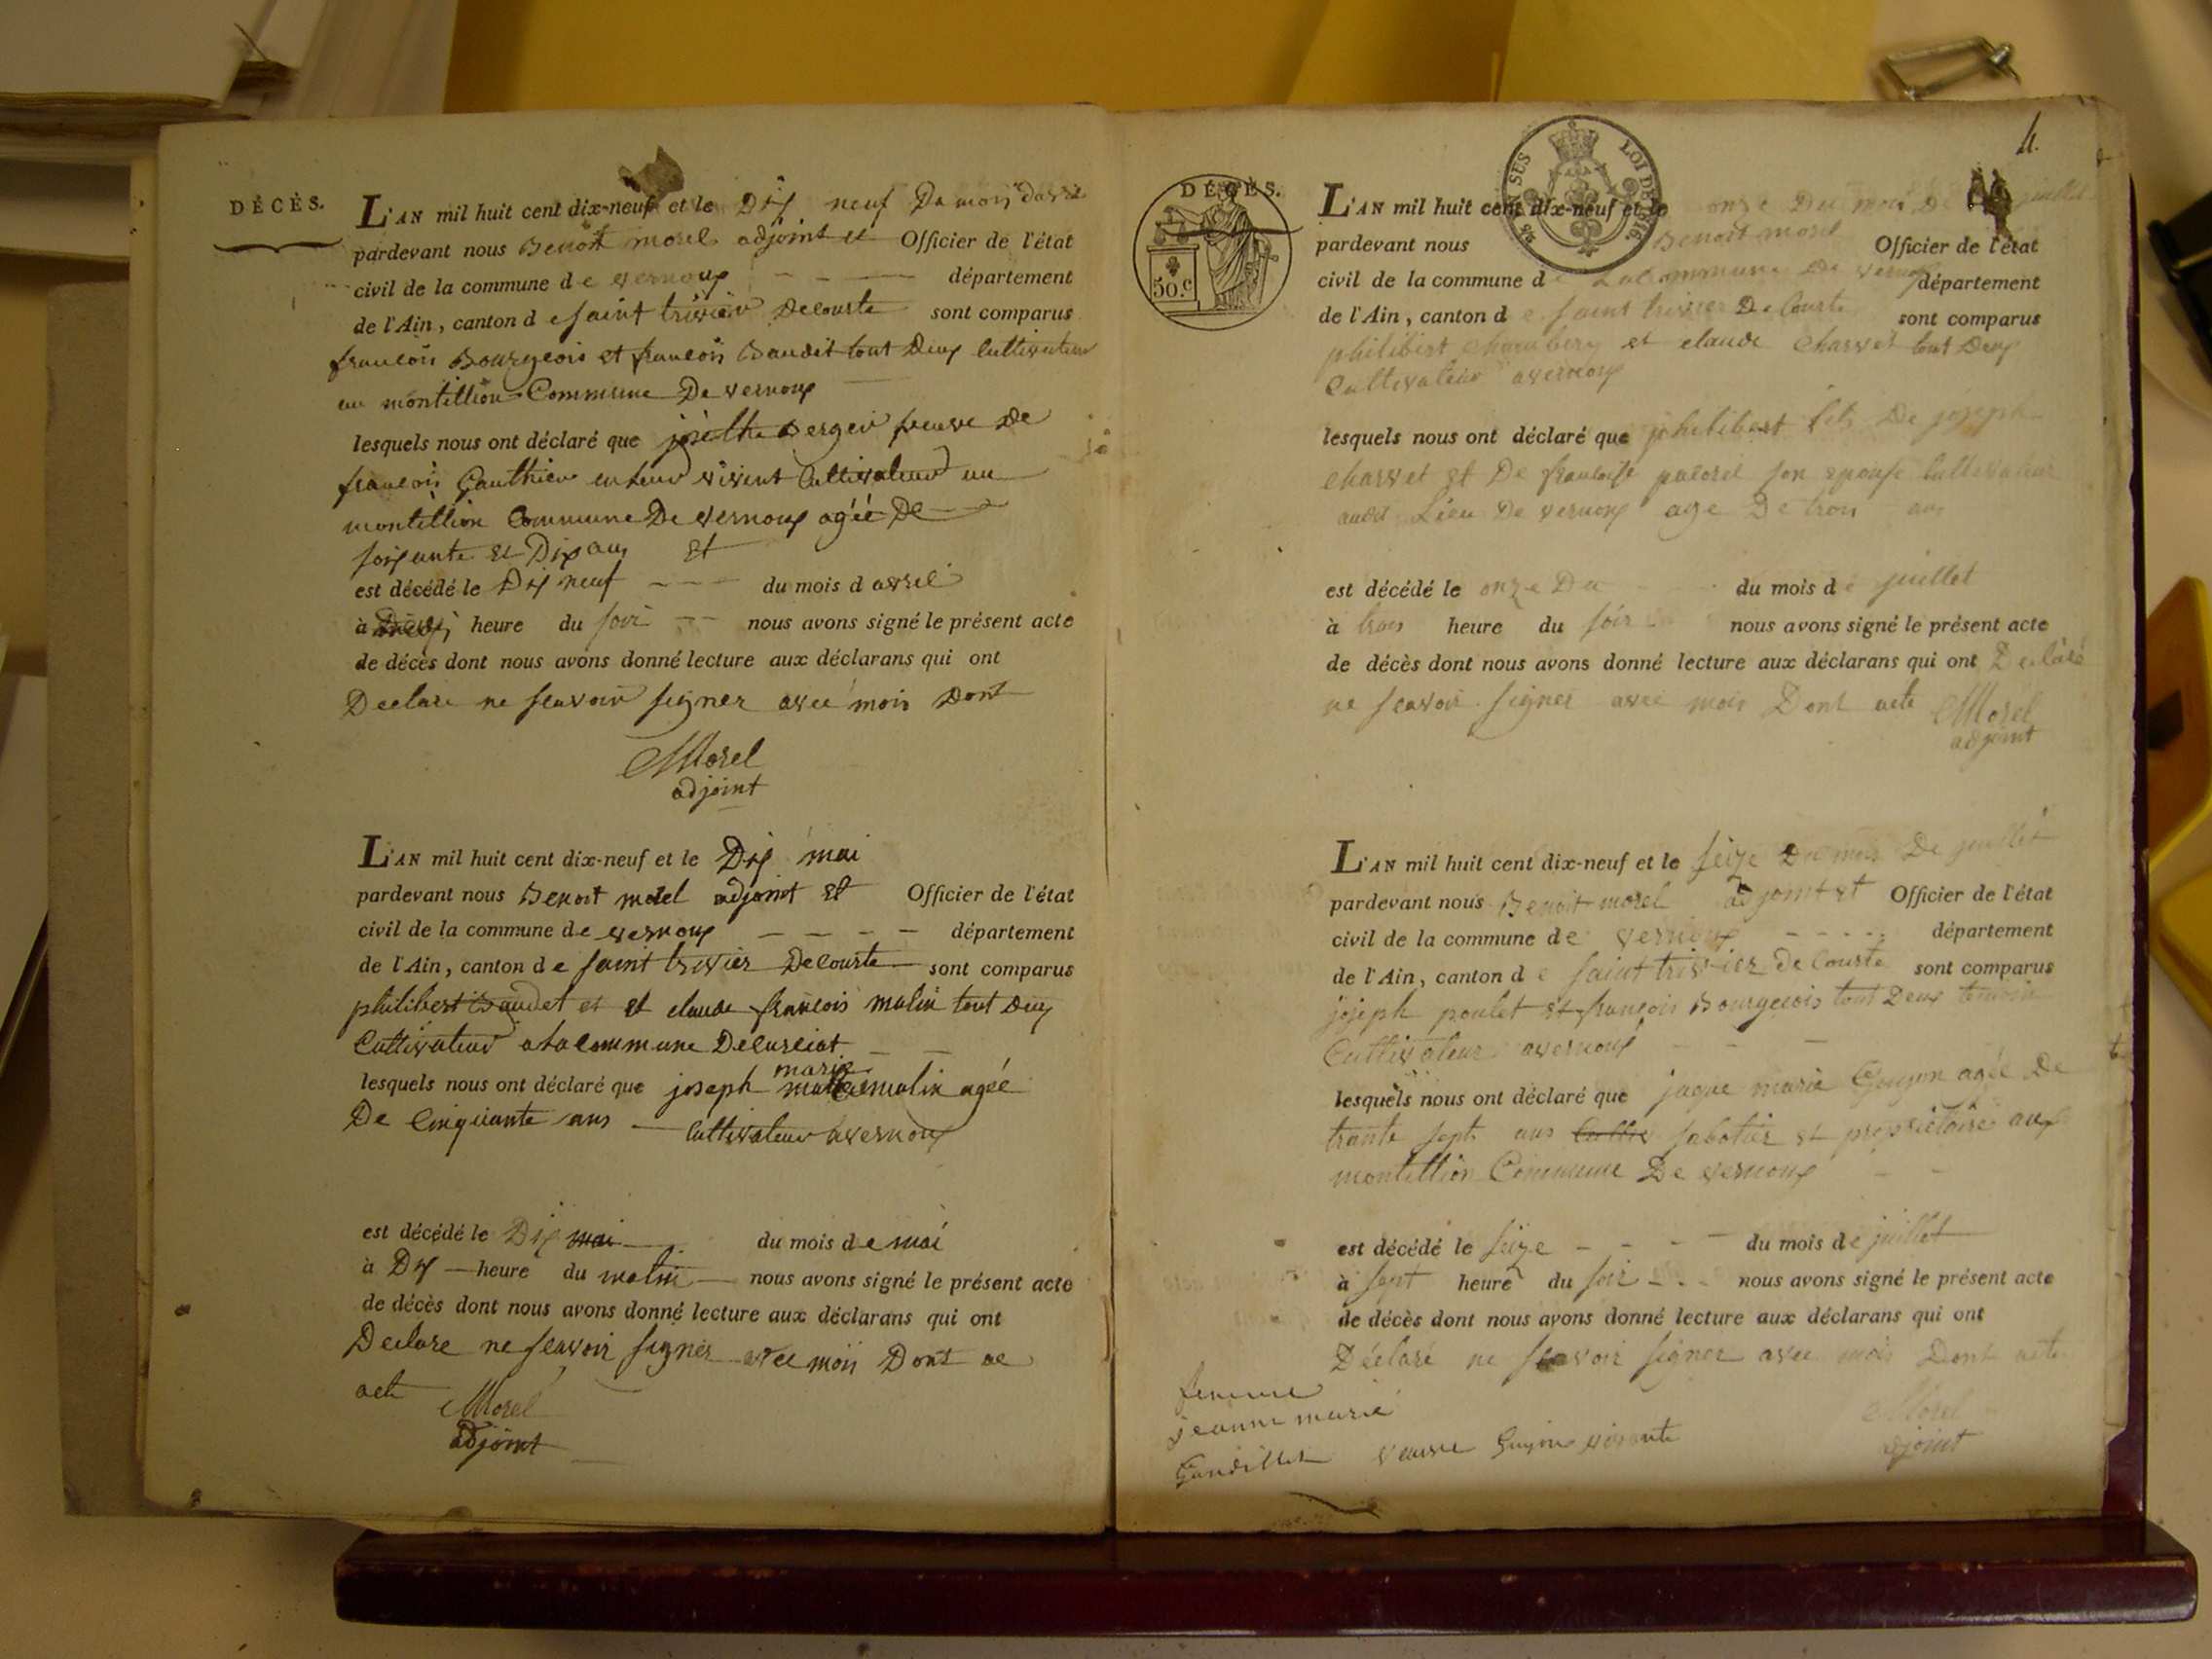 DÉCÈS.
L'AN mil huit cent dix-neuf et le Dix neuf Du mois davril
pardevant nous Benoit morel adjoint et Officier de l'état
civil de la commune de vernoux département
de l'Ain, canton de saint trivier Decourte sont comparus
francois Bourgeois et francois Baudet tout Deux Cultivateur
au montillion Commune De vernoux
lesquels nous ont déclaré que Berger veuve De
francois Gauthier en leur vivent Cultivateur au
montillion Commune De vernoux agéé De
soixante et Dix ans et
est décédé le Dix neuf du mois d avril
à heure du soir nous avons signé le présent acte
de décès dont nous avons donné lecture aux déclarans qui ont
Declare ne scavoir signer avec mois Dont
Morel
adjoint
L'AN mil huit cent dix-neuf et le Dix mai
pardevant nous Benoit morel adjoint et Officier de l'état
civil de la commune de vernoux département
de l'Ain, canton de saint trivier Decourte sont comparus
philibert Baudet et et claude francois malin tout Deux
Cultivateur a la commune Decurciat
lesquels nous ont déclaré que joseph marie malin agéé
De Cinquante ans Cultivateur a vernoux
est décédé le Dix mai du mois de mai
à Dix heure du matin nous avons signé le présent acte
de décès dont nous avons donné lecture aux déclarans qui ont
Declare ne scavoir signer avec mois Dont ac
acte Morel
adjoint
4.
DÉCÈS.
50.c
SUS LOI DE 1816.
L'AN mil huit cent dix-neuf et le onze Du mois De juillet
pardevant nous Benoit morel Officier de l'état
civil de la commune de La Commune De vernoux département
de l'Ain, canton de saint trivier De Courte sont comparus
philibert chambery et claude Charvet tout Deux
Cultivateur a vernoux
lesquels nous ont déclaré que philibert fils De joseph
charvet et De francoise son epouse Cultivateur
audit Lieu De vernoux age De trois ans
est décédé le onze Du du mois de juillet
à trois heure du soir nous avons signé le présent acte
de décès dont nous avons donné lecture aux déclarans qui ont Declaré
ne scavoir signer avec mois Dont acte Morel
adjoint
L'AN mil huit cent dix-neuf et le seize Du mois De juillet
pardevant nous Benoit morel adjoint et Officier de l'état
civil de la commune de vernoux département
de l'Ain, canton de saint trivier de Courte sont comparus
joseph poulet et francois Bourgeois tout Deux temoin
Cultivateur a vernoux
lesquels nous ont déclaré que jaque marie Guyon agéé De
trante sept ans sabotier et propriétaire aux
montillion Commune De vernoux
est décédé le seize du mois de juillet
à sept heure du soir nous avons signé le présent acte
de décès dont nous avons donné lecture aux déclarans qui ont
Déclaré ne scavoir signer avec mois Dont acte
Morel
adjoint
femme
jeanne marie
Gandillet veuve Guyon vivante